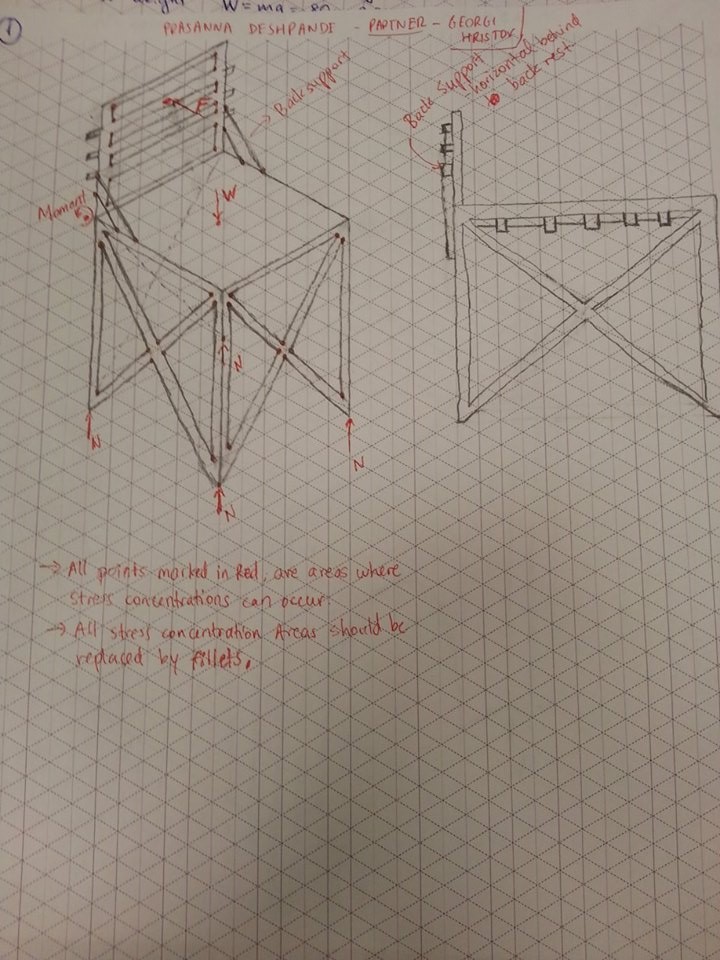 W = ma =
①
PRASANNA DESHPANDE - PARTNER - GEORGI
HRISTOV
Back support
F
Moment
W
N
N
N
N
Back Support
- horizontal behind
back rest.
→ All points marked in Red, are areas where
stress concentrations can occur.
→ All stress concentration Areas should be
replaced by fillets.